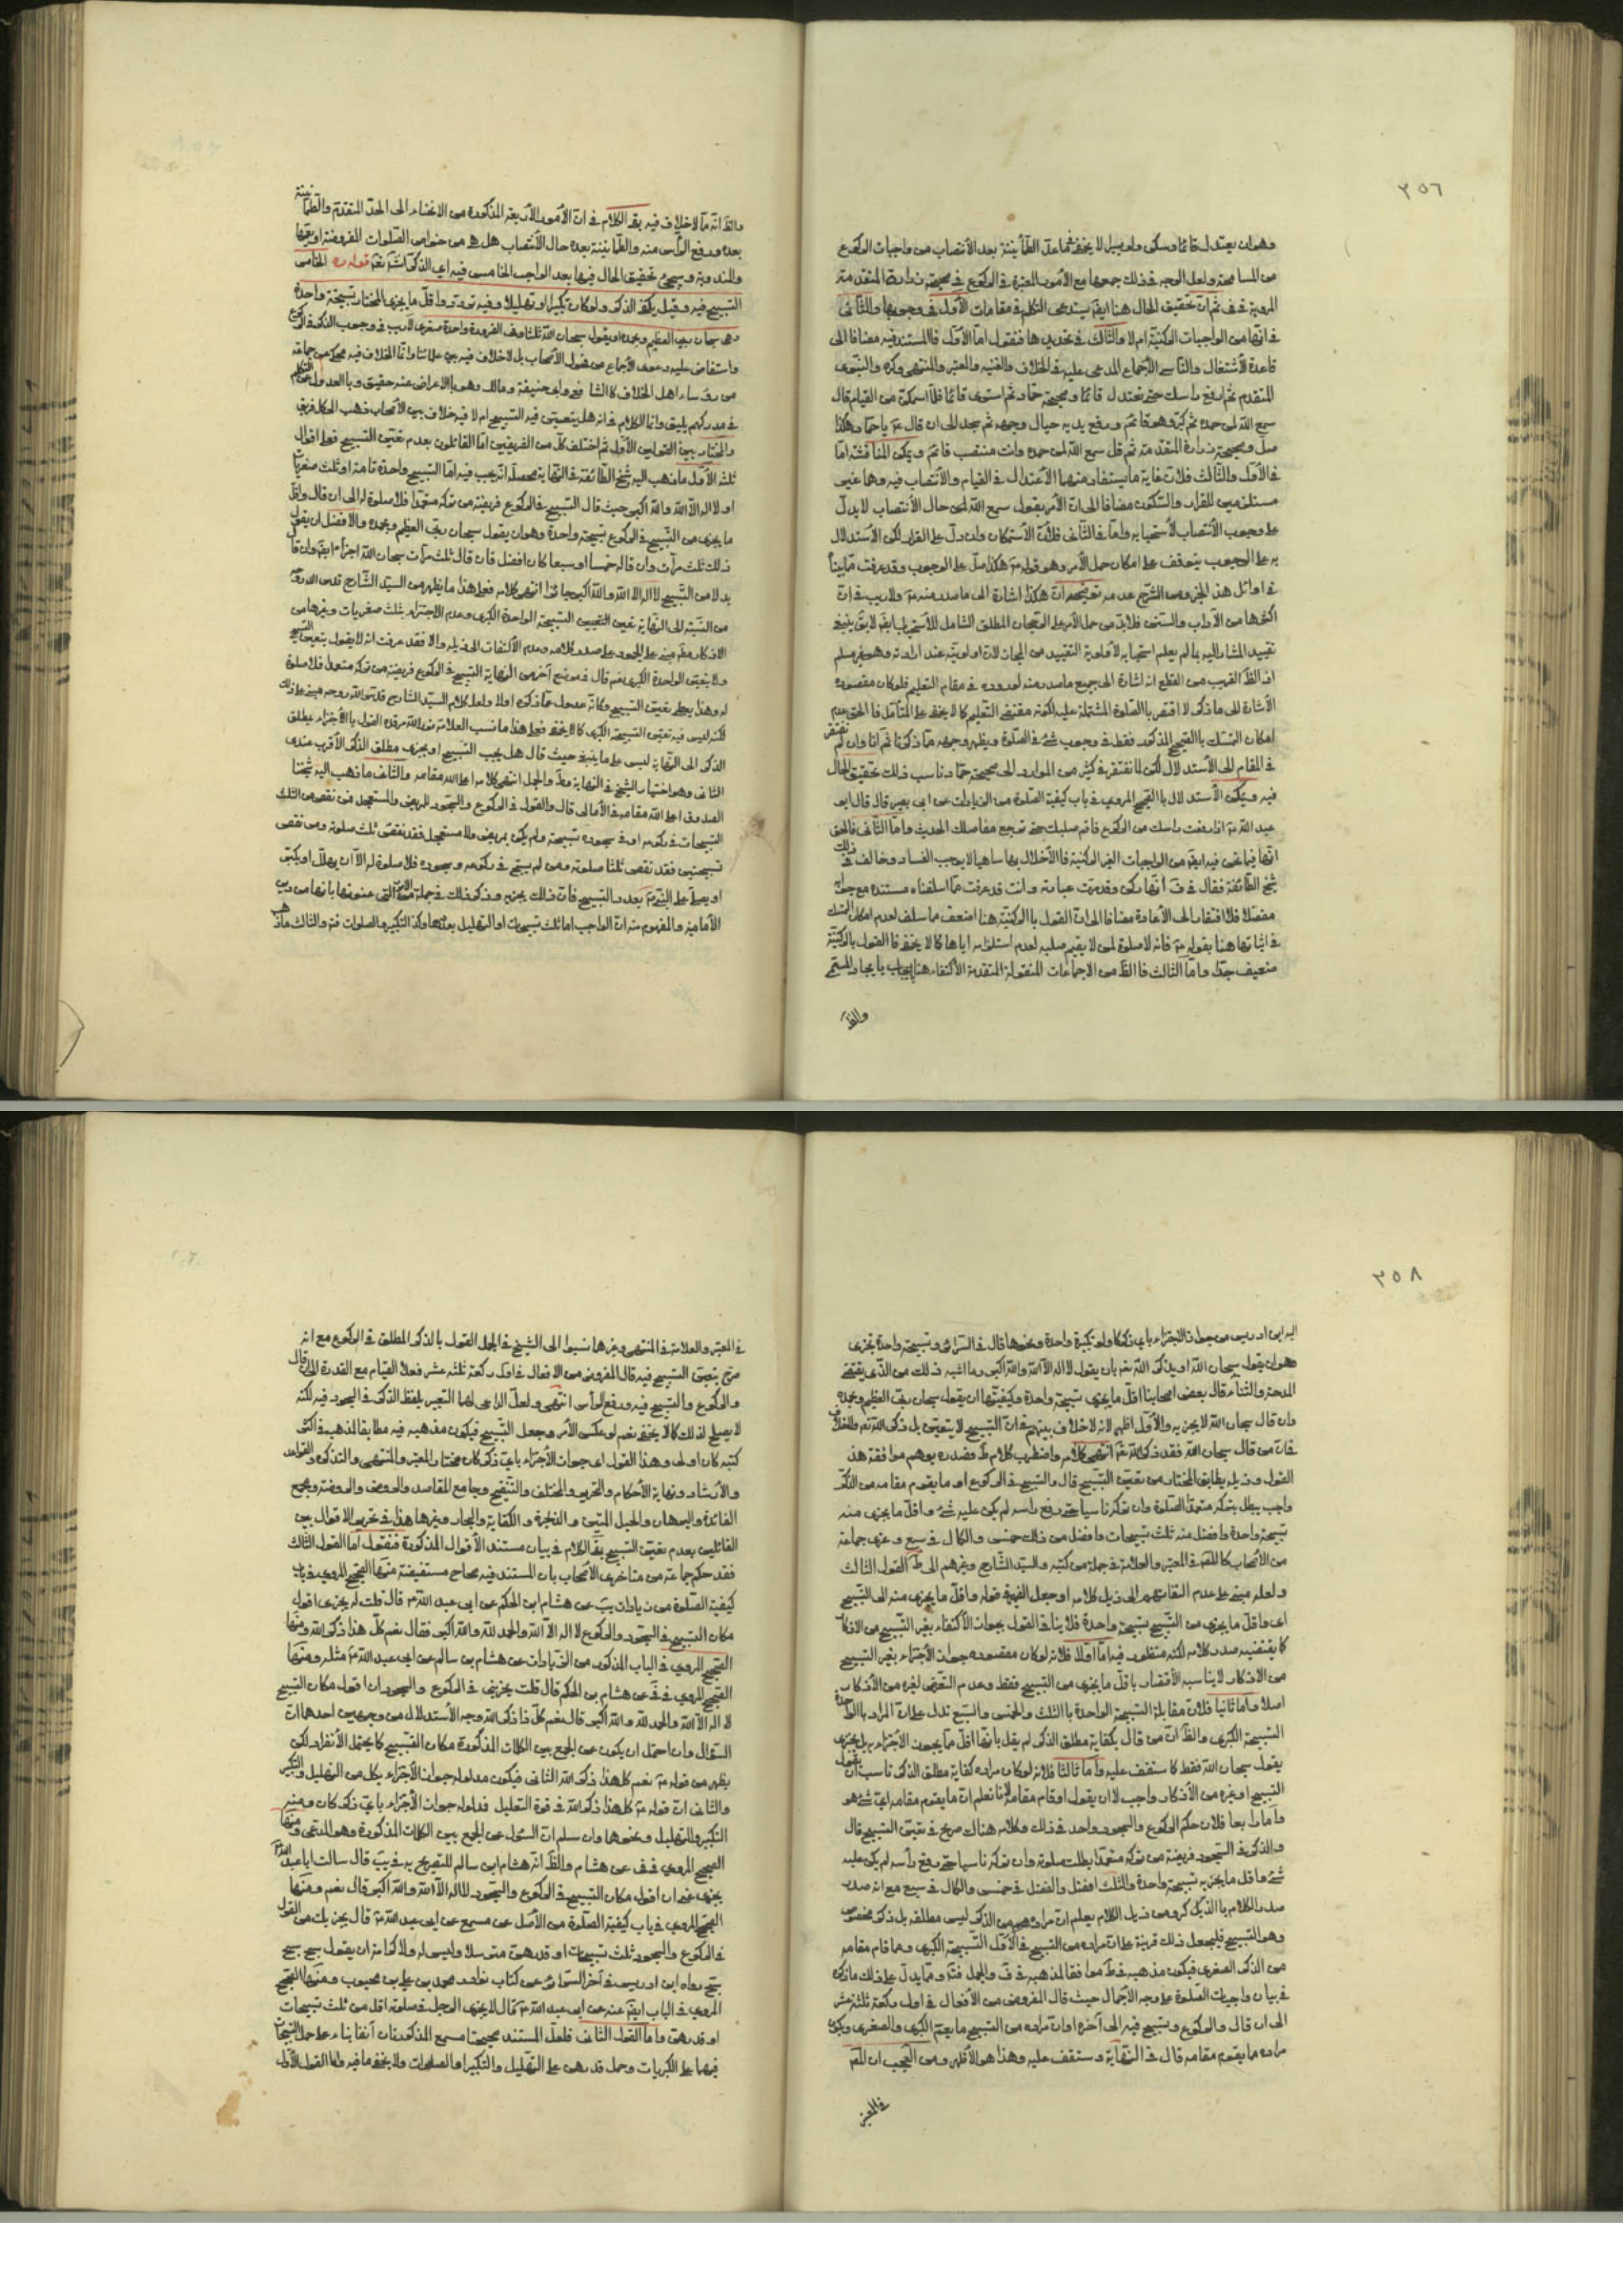 ٣٥٦
وهو ان يعتدل قائما ويسكن ولو يسيرا لا يخفى ثم اعدّ الطمأنينة بعد الانتصاب من واجبات الركوع
من المسامحة ولعل الوجه في ذلك جمعها مع الأمور المعتبرة في الركوع في صحيحة زرارة المتقدمة
المروية في ثم ان تحقيق الحال هنا ايضا يستدعى التكلم في مقامات الأول في وجوبها والثاني
في انها من الواجبات الركنية ام لا والثالث في تحديدها فنقول اما الأول فالمستند فيه مضافا الى
قاعدة الاشتغال والتأسي الاجماع المدعى عليه في الخلاف والغنيه والمعتبر والمنتهى وكره والنبوى
المتقدم ثم ارفع راسك حتى تعتدل قائما وصحيحة حماد ثم استوى قائما فلما استمكن من القيام قال
سمع الله لمن حمده ثم كبر وهو قائم ورفع يديه حيال وجهه ثم سجد الى ان قال يا حماد هكذا
صل وصحيحة زرارة المتقدمة ثم قل سمع الله لمن حمده وانت منتصب قائم ويمكن المناقشة اما
في الأول والثالث فلان غاية ما يستفاد منهما الاعتدال في القيام والانتصاب فيه وهما غير
مستلزمين للقرار والسكون مضافا الى ان الأمر بقول سمع الله لمن حمده حال الانتصاب لا يدل
على وجوب الانتصاب لاستحبابه واما في الثاني فلان الاستمكان وان دل على القرار لكن الاستدلال
به على الوجوب يتوقف على امكان حمل الأمر وهو قوله هكذا صل على الوجوب وقد عرفت مما بينا
في اوائل هذا الجزء من الشرح عدمه توضيحه ان هكذا اشارة الى ما صدر منه ولا ريب في ان
اكثرها من الآداب والسنن فلا بد من حمل الأمر على الرجحان المطلق الشامل للاستحباب
تقييد المشار اليه بما لم يعلم استحبابه لأولوية التقييد من المجاز لان اولويته عند ارادته وهو غير مسلم
اذ الظ القريب من القطع انه اشارة الى جميع ما صدر منه لوروده في مقام التعليم فلو كان مقصوده
الاشارة الى ما ذكر لاقتصر بالصلوة المشتملة عليه لكونه مقتضى التعليم كما لا يخفى على المتأمل فالحق عدم
امكان التمسك بالصحيح المذكور فقط في وجوب شئ في الصلوة ويظهر وجهه مما ذكرنا ثم انا وان لم نفتقر
في المقام الى الاستدلال لكن لما نفتقر في كثير من الموارد الى صحيحة حماد ناسب ذلك تحقيق الحال
فيه ويمكن الاستدلال بالصحيح المروى في باب كيفية الصلوة من الزيادات عن ابى بصير قال قال ابو
عبد الله اذا رفعت راسك من الركوع فاقم صلبك حتى ترجع مفاصلك الحديث واما الثاني فالحق
انها فيما نحن فيه ايضا من الواجبات الغير الركنية فالاخلال بها ساهيا لا يوجب الفساد وخالف في ذلك
شيخ الطائفة فقال في ف انها ركن وقد مرت عبارته وانت قد عرفت مما اسلفناه مستنده مع جوابه
مفصلا فلا افتقار الى الاعادة مضافا الى ان القول بالركنية هنا اضعف مما سلف لعدم امكان التمسك
في اثباتها هنا بقوله فانه لا صلوة لمن لا يقيم صلبه لعدم استلزامه اياها كما لا يخفى فالقول بالركنية
ضعيف جدا واما الثالث فالظ من الاجماعات المنقولة المتقدمة الاكتفاء هنا بايجاد المسمى
والظ
والظ انه مما لا خلاف فيه بقى الكلام في ان الأمور الأربعة المذكورة من الانحناء الى الحد المتقدم والطمأنينة
بعده ورفع الرأس منه والطمأنينة بعده حال الانتصاب هل هو من خواص الصلوات المفروضة او يعمها
والمندوبة وسيجئ تحقيق الحال فيها بعد الواجب الخامس فيه اي الذكر قوله الخامس
التسبيح فيه وقيل يكفى الذكر ولو كان تكبيرا او تهليلا وفيه تردد واقل ما يجزى المختار تسبيحة واحدة
وهى سبحان ربى العظيم وبحمده او يقول سبحان الله ثلثا وفى الضرورة واحدة صغرى لا ريب في وجوب الذكر في الركوع
واستفاض عليه دعوى الاجماع من فحول الأصحاب بل لا خلاف فيه بين علمائنا وانما الخلاف فيه محكى عن جماعة
من رؤساء اهل الخلاف كالشافعي وابى حنيفة ومالك وهو بالاعراض عنه حقيق وبالعدول عن التكلم
في مدركهم يليق وانما الكلام في انه هل يتعين فيه التسبيح ام لا فيه خلاف بين الأصحاب ذهب الى كل فريق
والمختار بين القولين الأول ثم اختلف كل من الفريقين اما القائلون بعدم تعين التسبيح فعلى اقوال
ثلثة الأول ما ذهب اليه شيخ الطائفة في النهاية محصله انه يجب فيه اما التسبيح واحدة تامة او ثلث صغريات
او لا اله الا الله والله اكبر حيث قال التسبيح في الركوع فريضة من تركه متعمدا فلا صلوة له الى ان قال واقل
ما يجزى من التسبيح في الركوع تسبيحة واحدة وهو ان يقول سبحان ربى العظيم وبحمده والافضل ان يقول
ذلك ثلث مرات وان قاله خمسا او سبعا كان افضل فان قال ثلث مرات سبحان الله اجزأه ايضا وان قال
بدلا من التسبيح لا اله الا الله والله اكبر جائزا انتهى كلامه فعلى هذا ما يظهر من السيد الشارح قدس الله روحه
من النسبة الى النهاية تعين التسبيحة الواحدة الكبرى وعدم الاجتزاء بثلث صغريات وغيرها من
الاذكار مبنى على الجمود على صدر كلامه وعدم الالتفات الى ذيله والا فقد عرفت انه لا يقول بتعين التسبيح
ولا بتعين الواحدة الكبرى نعم قال في موضع آخر من النهاية التسبيح في الركوع فريضة من تركه متعمدا فلا صلوة
له وهذا يعطى تعين التسبيح وكانه عدول عما ذكره اولا ولعل كلام السيد الشارح قدس الله روحه مبنى على ذلك
لكنه ليس فيه تعين التسبيحة الكبرى كما لا يخفى فعلى هذا ما نسب العلامة القول بالاجزاء بمطلق
الذكر الى النهاية ليس على ما ينبغى حيث قال هل يجب التسبيح او يجزى مطلق الذكر الاقرب عندى
الثاني وهو اختيار الشيخ في النهاية والجمل انتهى كلامه اعلى الله مقامه والثاني ما ذهب اليه شيخنا
الصدوق اعلى الله مقامه في الأمالى قال والقول في الركوع والسجود للمريض والمستعجل فمن نقص من الثلث
التسبيحات في ركوعه او في سجوده تسبيحة ولم يكن بمريض ولا مستعجل فقد نقص ثلث صلوته ومن نقص
تسبيحتين فقد نقص ثلثا صلوته ومن لم يسبح في ركوعه وسجوده فلا صلوة له الا ان يهلل او يكبر
او يصلى على النبى بعدد التسبيح فان ذلك يجزيه وذكر ذلك في جملة التى عنونها بانها من دين
الامامية والمفهوم منه ان الواجب اما ثلث تسبيحات او التهليل بعددها وكذا التكبير والصلوات والثالث ما ذهب
٣٥٨
اليه ابن ادريس من جواز الاجتزاء باى ذكر كان ولو تكبيرة واحدة ونحوها قال في السرائر وتسبيحة واحدة يجزى
وهو ان يقول سبحان الله او يذكر الله بان يقول لا اله الا الله والله اكبر وما اشبه ذلك من الذى يقتضى
المدحة والثناء قال بعض اصحابنا اقل ما يجزى تسبيحة واحدة وكيفيتها ان يقول سبحان ربى العظيم وبحمده
وان قال سبحان الله لا يجزيه والأول اظهر لانه لا خلاف بينهم في ان التسبيح لا يتعين بل ذكر الله تعم ولا خلاف
فان من قال سبحان الله فقد ذكر الله تعم انتهى كلامه واضطرب كلام ط فصدره يوهم موافقة هذا
القول وذيله يطابق المختار من تعين التسبيح قال والتسبيح في الركوع او ما يقوم مقامه من الذكر
واجب يبطل بتركه متعمدا الصلوة وان تركه ناسيا حتى رفع راسه لم يكن عليه شئ واقل ما يجزى منه
تسبيحة واحدة وافضل منه ثلث تسبيحات وافضل من ذلك خمس والكمال في سبع وعزى جماعة
من الأصحاب كالمص في المعتبر والعلامة في جملة من كتبه والسيد الشارح وغيرهم الى ط القول الثالث
ولعله مبنى على عدم التفاتهم الى ذيل كلامه او جعل الضمير في قوله واقل ما يجزى منه الى التسبيح
اى واقل ما يجزى من التسبيح تسبيحة واحدة فلا ينافى القول بجواز الاكتفاء بغير التسبيح من الاذكار
كما يقتضيه صدر كلامه لكنه منظور فيه اما اولا فلانه لو كان مقصوده جواز الاجتزاء بغير التسبيح
من الاذكار لا يناسبه الاقتصار باقل ما يجزى من التسبيح فقط وعدم التعرض لغيره من الاذكار
اصلا واما ثانيا فلان مقابلة التسبيحة الواحدة بالثلث والخمس والسبع تدل على ان المراد بالواحدة
التسبيحة الكبرى والظ ان من قال بكفاية مطلق الذكر لم يقل بانها اقل ما يجوز الاجتزاء به بل يجزى
بقول سبحان الله فقط كما ستقف عليه واما ثالثا فلانه لو كان مراده كفاية مطلق الذكر ناسب ان يقول
التسبيح او غيره من الاذكار واجب لا ان يقول او قام مقامه لانا نعلم ان ما يقوم مقامه اى شئ هو
واما رابعا فلان حكم الركوع والسجود واحد في ذلك وكلامه هناك صريح في تعين التسبيح قال
والذكر في السجود فريضة من تركه متعمدا بطلت صلوته وان تركه ناسيا حتى رفع رأسه لم يكن عليه
شئ واقل ما يجزيه تسبيحة واحدة والثلث افضل والفضل في خمس والكمال في سبع مع انه صدر
صدر الكلام بالذكر ومن ذيل الكلام يعلم ان مراده من الذكر ليس مطلقه بل ذكر مخصوص
وهو التسبيح فليجعل ذلك قرينة على ان مراده من التسبيح في الأول التسبيحة الكبرى وما قام مقامه
من الذكر الصغرى فيكون مذهبه في ط موافقا لمذهبه في ف والجمل ومما يدل على ذلك ما ذكره
في بيان واجبات الصلوة على وجه الاجمال حيث قال المفروض من الافعال في اول ركعة ثلثة عشر
الى ان قال والركوع وتسبيح فيه الى آخره او ان مراده من التسبيح ما يعم الكبرى والصغرى ويكون
مراده ما يقوم مقامه قال في النهاية وستقف عليه وهذا هو الأظهر ومن العجيب ان المص
في المعتبر
في المعتبر والعلامة في المنتهى وغيرهما نسبوا الى الشيخ في الجمل القول بالذكر المطلق في الركوع مع انه
صرح بتعين التسبيح فيه قال المفروض من الافعال في اول ركعة ثلثة عشر فعلا القيام مع القدرة الى ان قال
والركوع والتسبيح فيه ورفع الرأس انتهى ولعل الداعى لهما التعبير بلفظ الذكر في السجود فيه لكنه
لا يصلح لذلك كما لا يخفى نعم لو عكس الأمر وجعل التسبيح فيكون مذهبه فيه مطابقا لمذهبه في اكثر
كتبه كان اولى وهذا القول اى جواز الاجزاء باى ذكر كان مختار المعتبر والمنتهى والتذكره والقواعد
والارشاد ونهاية الأحكام والتحرير والمختلف والتنقيح وجامع المقاصد والروض والروضة ومجمع
الفائدة والبرهان والحبل المتين والذخيرة والكفاية والبحار وغيرها هذا في تحرير الاقوال بين
القائلين بعدم تعين التسبيح بقى الكلام في بيان مستند الأقوال المذكورة فنقول اما القول الثالث
فقد حكم جماعة من متاخرى الأصحاب بان المستند فيه صحاح مستفيضة منها الصحيح المروى في باب
كيفية الصلوة من زيادات يب عن هشام ابن الحكم عن ابى عبد الله قال قلت له يجزى ان اقول
مكان التسبيح في السجود والركوع لا اله الا الله والحمد لله والله اكبر فقال نعم كل هذا ذكر الله ومنها
الصحيح المروى في الباب المذكور من الزيادات عن هشام بن سالم عن ابى عبد الله مثله ومنها
الصحيح المروى في في عن هشام بن الحكم قال قلت يجزينى في الركوع والسجود ان اقول مكان التسبيح
لا اله الا الله والحمد لله والله اكبر قال نعم كل ذا ذكر الله وجه الاستدلال من وجهين احدهما ان
السؤال وان احتمل ان يكون عن الجمع بين الكلمات المذكورة مكان التسبيح كما يحتمل الانفراد لكن
يظهر من قوله نعم كل هذا ذكر الله الثاني فيكون مدلوله جواز الاجزاء بكل من التهليل والتكبير
والثاني ان قوله كل هذا ذكر الله في قوة التعليل فمدلوله جواز الاجزاء باى ذكر كان ومنه
التكبير والتهليل ونحوها وان سلم ان السئول عن الجمع بين الكلمات المذكورة وهو المدعى ومنها
الصحيح المروى في في عن هشام والظ انه هشام ابن سالم للتصريح به في يب قال سالت ابا عبد الله
يجزى عنى ان اقول مكان التسبيح في الركوع والسجود لا اله الا الله والله اكبر قال نعم ومنها
الصحيح المروى في باب كيفية الصلوة من الأصل عن مسمع عن ابى عبد الله قال يجزيك من القول
في الركوع والسجود ثلث تسبيحات او قدرهن مترسلا وليس له ولا كرامة ان يقول سبح سبح
سبح رواه ابن ادريس في آخر السرائر عن كتاب نوادر محمد بن على بن محبوب ومنها الصحيح
المروى في الباب ايضا عنه عن ابى عبد الله قال لا يجزى الرجل في صلوته اقل من ثلث تسبيحات
او قدرهن واما القول الثاني فلعل المستند صحيحتا مسمع المذكورتان آنفا بناء على حمل التسبيحات
فيها على الكبريات وحمل قدرهن على التهليل والتكبير او الصلوات ولا يخفى ما فيه واما القول الأول